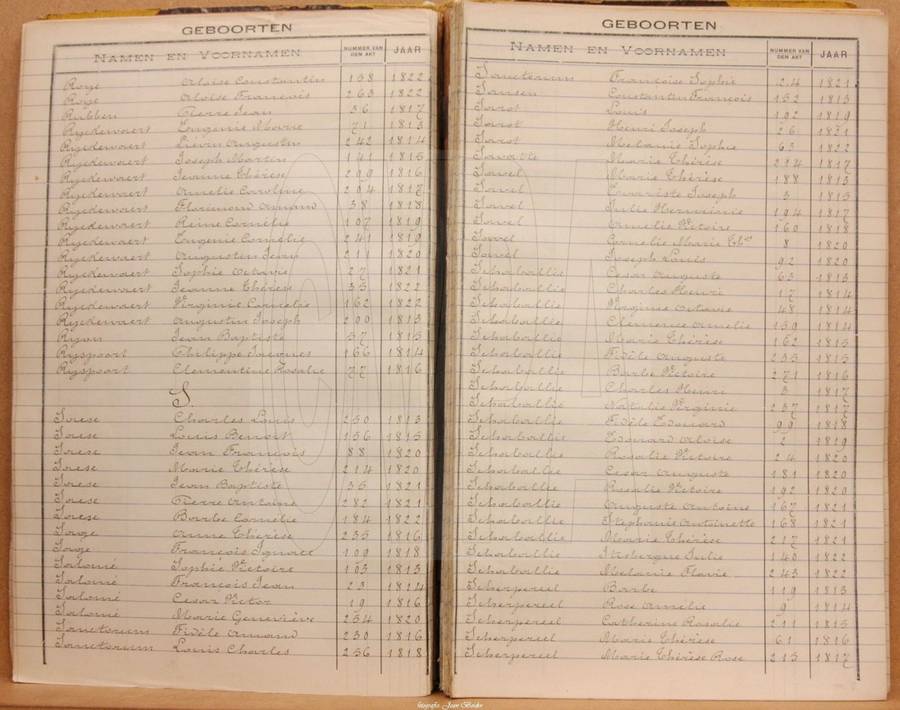 GEBOORTEN
NAMEN EN VOORNAMEN NUMMER VAN DEN AKT JAAR
Royé Aloïse Constantin 138 1822
Royé Aloïse François 263 1822
Rubben Pierre Jean 36 1817
Ryckewaert Eugenie Marie 71 1813
Ryckewaert Liévin Augustin 242 1814
Ryckewaert Joseph Martin 141 1815
Ryckewaert Jeanne Thérèse 299 1816
Ryckewaert Amelie Caroline 294 1817
Ryckewaert Florimond Amand 38 1818
Ryckewaert Reine Cornélie 107 1819
Ryckewaert Eugenie Cornélie 241 1819
Ryckewaert Augustin Jean 211 1820
Ryckewaert Sophie Octavie 27 1821
Ryckewaert Jeanne Thérèse 35 1822
Ryckewaert Virginie Cornélie 162 1822
Ryckewaert Augustin Joseph 200 1813
Ryon Jean Baptiste 37 1815
Ryspoort Philippe Jacques 166 1814
Ryspoort Clementine Rosalie 77 1816
S.
Saese Charles Louis 250 1813
Saese Louis Benoit 156 1815
Saese Jean François 88 1820
Saese Marie Thérèse 214 1820
Saese Jean Baptiste 35 1821
Saese Pierre Antoine 282 1821
Saese Barbe Cornélie 184 1822
Anne Thérèse 235 1816
François Ignace 109 1818
Salomé Sophie Victoire 103 1813
Salomé François Jean 23 1814
Salomé Cesar Victor 19 1816
Salomé Marie Geneviève 254 1820
Sanctorum Fidèle Amand 230 1816
Sanctorum Louis Charles 256 1818
GEBOORTEN
NAMEN EN VOORNAMEN NUMMER VAN DEN AKT JAAR
Sanctorum Françoise Sophie 24 1821
Sansen Constantin François 152 1813
Sarot Louis 192 1819
Sarot Henri Joseph 26 1821
Sarot Melanie Sophie 63 1822
Savatte Marie Thérèse 214 1817
Sawel Marie Thérèse 188 1813
Sawel Evariste Joseph 3 1815
Sawel Julie Herminie 194 1817
Sawel Amelie Victoire 160 1818
Sawel Cornelie Marie Thse 8 1820
Sawel Joseph Louis 92 1820
Schaballie Cesar Auguste 63 1813
Schaballie Charles Henri 17 1814
Schaballie Virginie Octavie 48 1814
Schaballie Clemence Amelie 139 1814
Schaballie Marie Thérèse 162 1815
Schaballie Fidèle Auguste 233 1815
Schaballie Barbe Victoire 271 1816
Schaballie Charles Henri 3 1817
Schaballie Natalie Virginie 237 1817
Schaballie Fidèle Edouard 99 1818
Schaballie Edouard Aloïse 2 1819
Schaballie Rosalie Victoire 24 1820
Schaballie Cesar Auguste 181 1820
Schaballie Rosalie Victoire 192 1820
Schaballie Auguste Antoine 167 1821
Schaballie Stephanie Antoinette 168 1821
Schaballie Marie Thérèse 217 1821
Schaballie Julie 140 1822
Schaballie Melanie Flavie 243 1822
Scherpereel Barbe 119 1813
Scherpereel Rose Amelie 9 1814
Scherpereel Catherine Rosalie 211 1815
Scherpereel Marie Thérèse 61 1816
Scherpereel Marie Thérèse Rose 213 1817